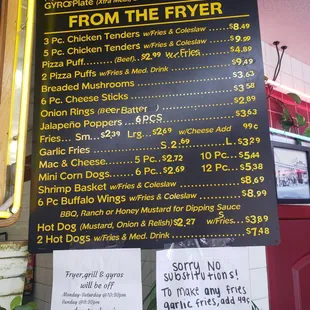 GYRO Plate (Xtra Meat
FROM THE FRYER
3 Pc. Chicken Tenders w/Fries & Coleslaw $8.49
5 Pc. Chicken Tenders w/Fries & Coleslaw $9.99
Pizza Puff (Beef) $2.99 w/Fries $4.89
2 Pizza Puffs w/Fries & Med. Drink $9.49
Breaded Mushrooms $3.63
6 Pc. Cheese Sticks $3.58
Onion Rings (Beer Batter) $2.89
Jalapeño Poppers 6PCS $3.63
Fries... Sm...$2.39 Lrg...$2.69 w/Cheese Add 99¢
Garlic Fries S 2.69 L 3.29
Mac & Cheese 5 Pc. $2.72 10 Pc. $5.44
Mini Corn Dogs 6 Pc. $2.69 12 Pc. $5.38
Shrimp Basket w/Fries & Coleslaw $8.69
6 Pc Buffalo Wings w/Fries & Coleslaw $8.99
BBQ, Ranch or Honey Mustard for Dipping Sauce S
Hot Dog (Mustard, Onion & Relish) $2.27 w/Fries $3.89
2 Hot Dogs w/Fries & Med. Drink $7.48
Fryer,grill & gyros
will be off
Monday-Saturday @10:30pm
Sunday @10:30pm
Sorry No
substitutions!
To make any fries
garlic fries, add 49¢